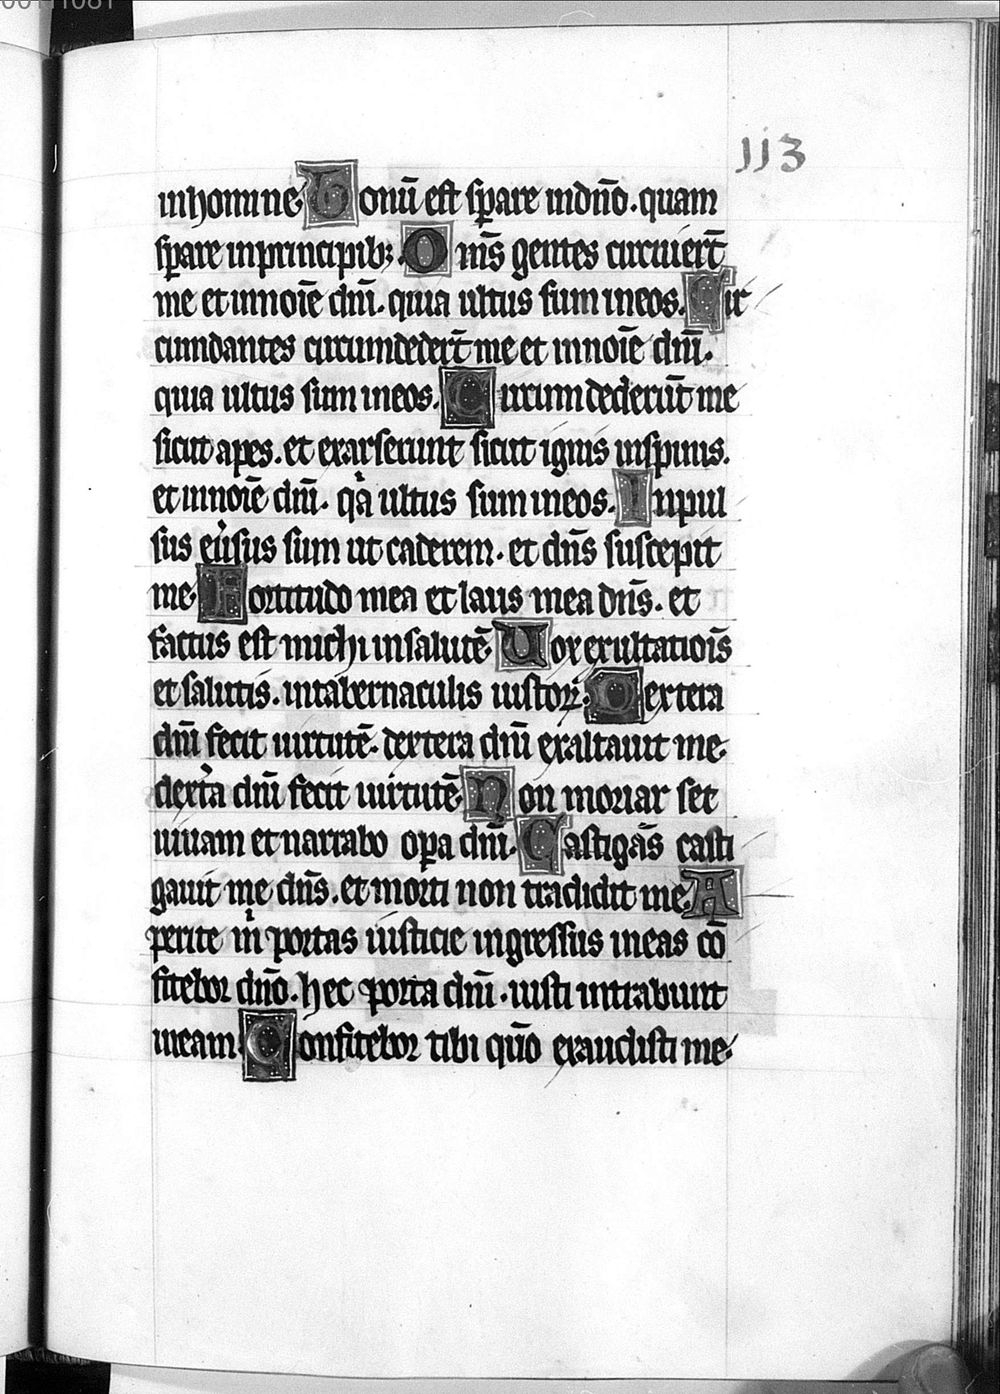 00111081
113
in homine. Bonū est sꝑare in dn̄o. quam
sꝑare in principibꝫ. Om̄s gentes circuier̄t
me et in noīe dn̄i. quia ultus sum in eos. Cir
cumdantes circumdeder̄t me et in noīe dn̄i.
quia ultus sum in eos. Circumdederūt me
sicut apes. et exarserunt sicut ignis in spinis.
et in noīe dn̄i. qͣa ultus sum in eos. Inpul
sus eūsus sum ut caderem. et dn̄s suscepit
me. Fortitudo mea et laus mea dn̄s. et
factus est michi in salutē. Uox exultatiōis
et salutis. in tabernaculis iustoꝝ. Dextera
dn̄i fecit uirtutē. dextera dn̄i exaltauit me.
dext̾a dn̄i fecit uirtutē. Non moriar set
uiuam et narrabo oꝑa dn̄i. Castigās casti
gauit me dn̄s. et morti non tradidit me. A
perite mͥ portas iusticie ingressus in eas cō
fitebor dn̄o. hec porta dn̄i. iusti intrabunt
in eam. Confitebor tibi qn̄o exaudisti me.